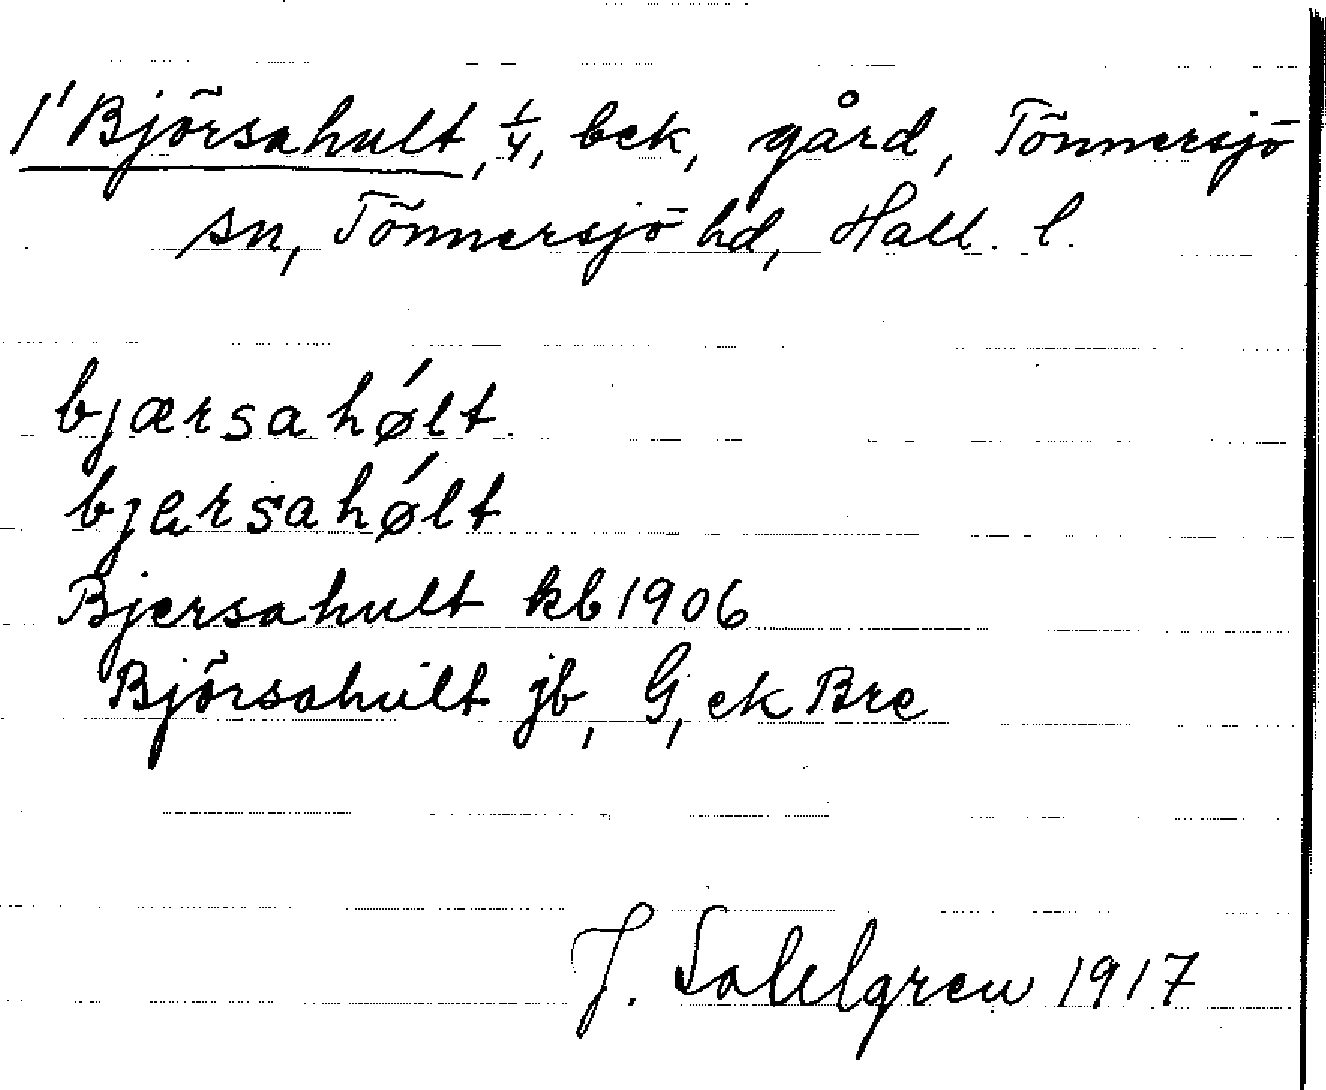 1' Björsahult, 1/4, bek, gård, Tönnersjö
sn, Tönnersjö hd, Hall. l.
bjærsahǿlt.
bjersahǿlt
Bjersahult kb 1906
Björsahult jb, G, ek Bre
J. Sahlgren 1917